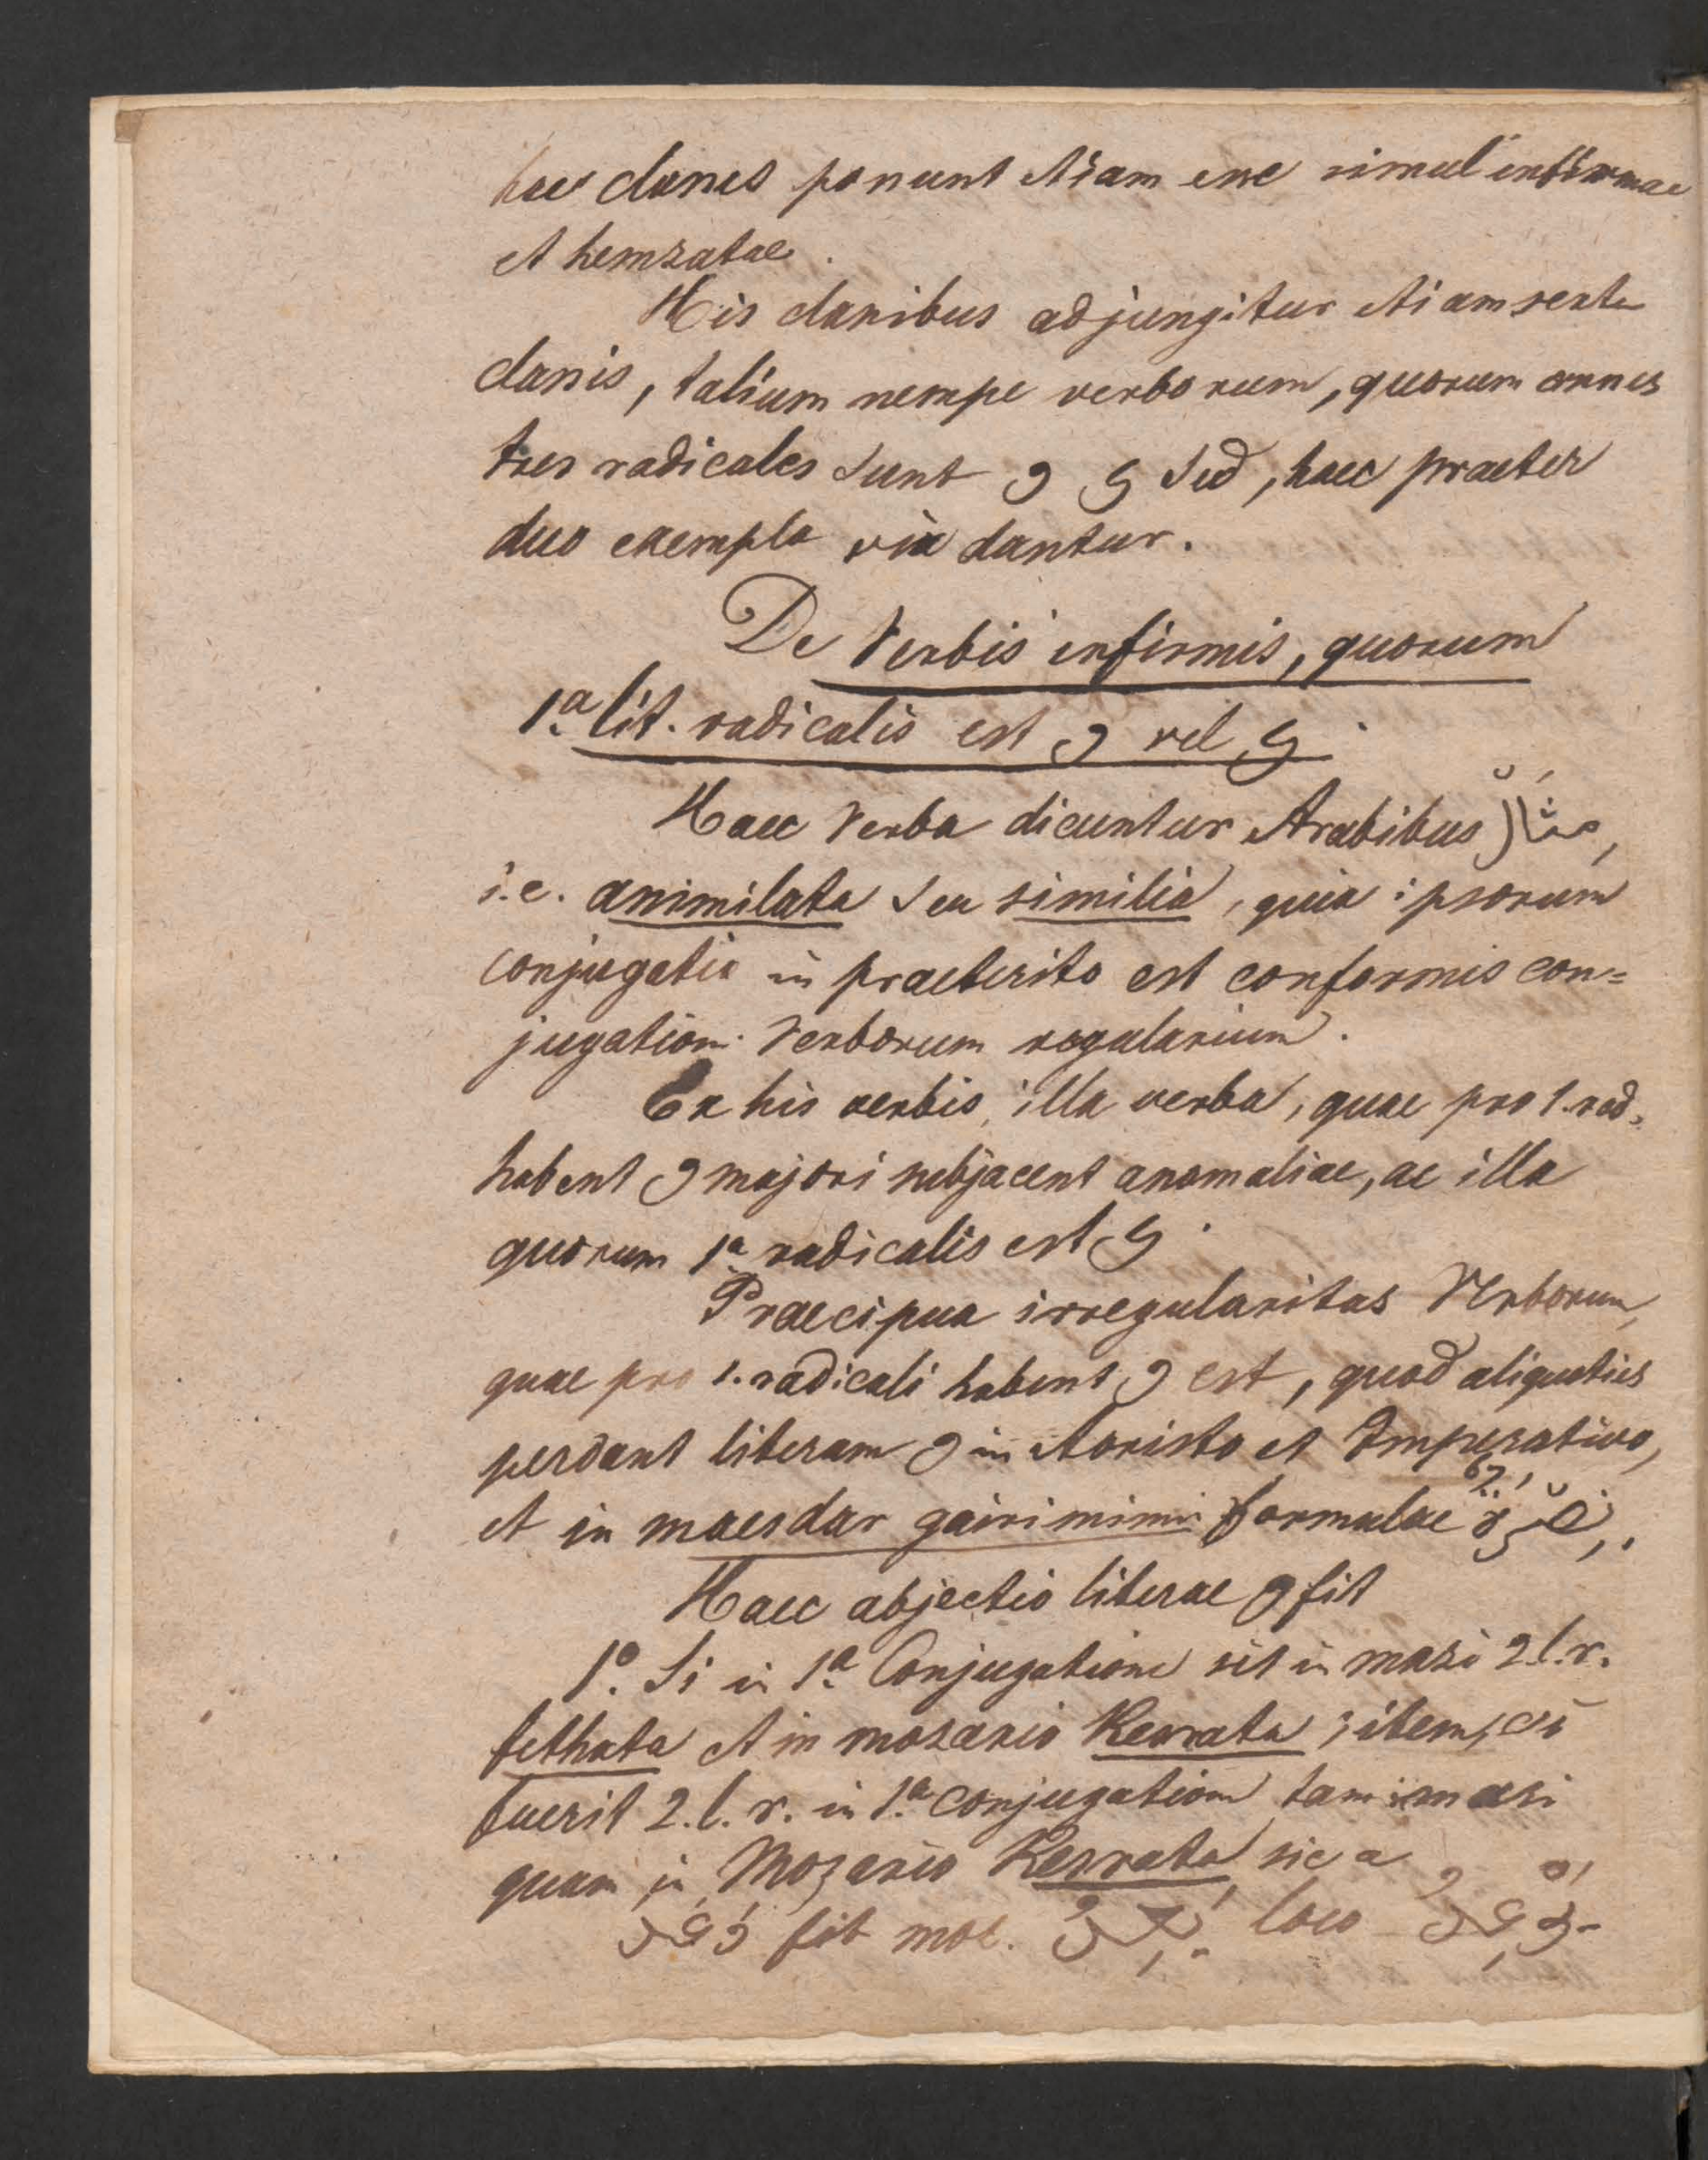 hae classes possunt etiam esse simul infirmae
et hemzatae.
His classibus adjungitur etiam sexta
classis, talium nempe verborum, quorum omnes
tres radicales sunt و ى sed, haec praeter
duo exempla vix dantur.
De Verbis infirmis, quorum
1.ª lit. radicalis est و vel ى.
Haec Verba dicuntur Arabibus مثال,
i.e. assimilata seu similia, quia ipsorum
conjugatio in praeterito est conformis con=
jugationi Verborum regularium.
Ex his verbis, illa verba, quae pro 1. rad.
habent و majori subjacent anomaliae, ac illa
quorum 1.ª radicalis est ى.
Praecipua irregularitas Verborum,
quae pro 1. radicali habent و est, quod aliquoties
perdant literam و in Aoristo et Imperativo,
et in maesdar gairi mimii formulae
Haec abjectio literae و fit
1.º Si in 1.ª Conjugatione sit in mazi 2.l.r.
fethata et in mozario Kesrata; item, si
fuerit 2.l.r. in 1.ª conjugatione tam in mazi
quam in Mozario Kesrata, sic a
وعد fit moz. يَعِدُ loco يَوْعِدُ